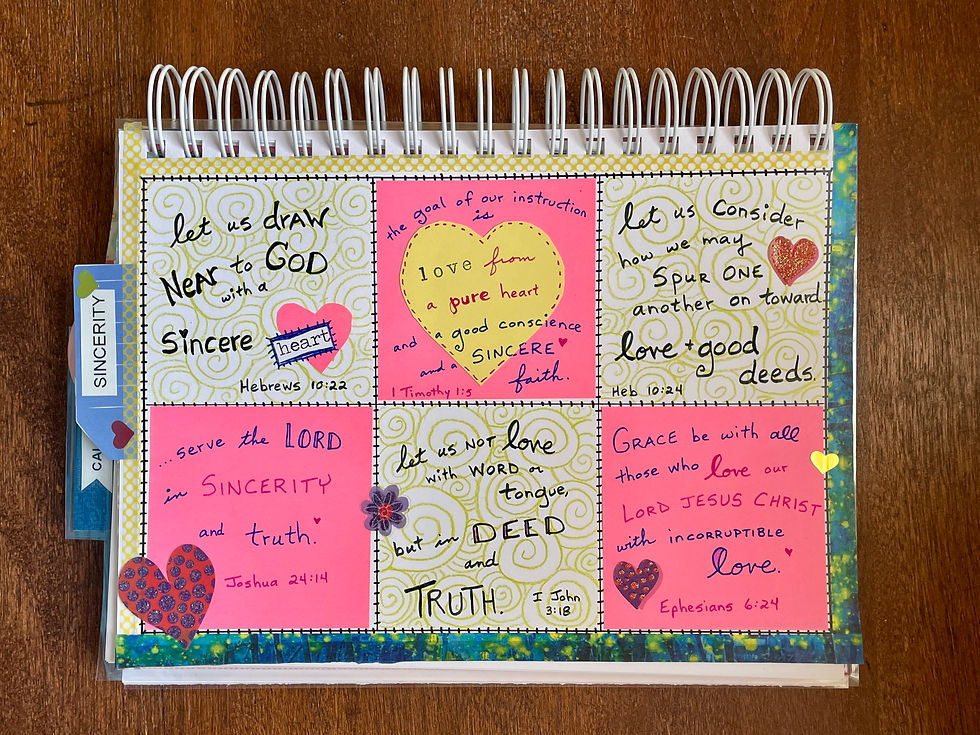 let us draw
Near to God
with a
Sincere heart
Hebrews 10:22
the goal of our instruction
is
love from
a pure heart
a good conscience
and
and a SINCERE
faith.
1 Timothy 1:5
let us Consider
how we may
SPUR ONE
another on toward
love + good
deeds.
Heb 10:24
SINCERITY
...serve the LORD
in SINCERITY
and truth.
Joshua 24:14
let us NOT love
with WORD or
tongue,
but in DEED
and
TRUTH.
I John
3:18
GRACE be with all
those who love our
LORD JESUS CHRIST
with incorruptible
love.
Ephesians 6:24